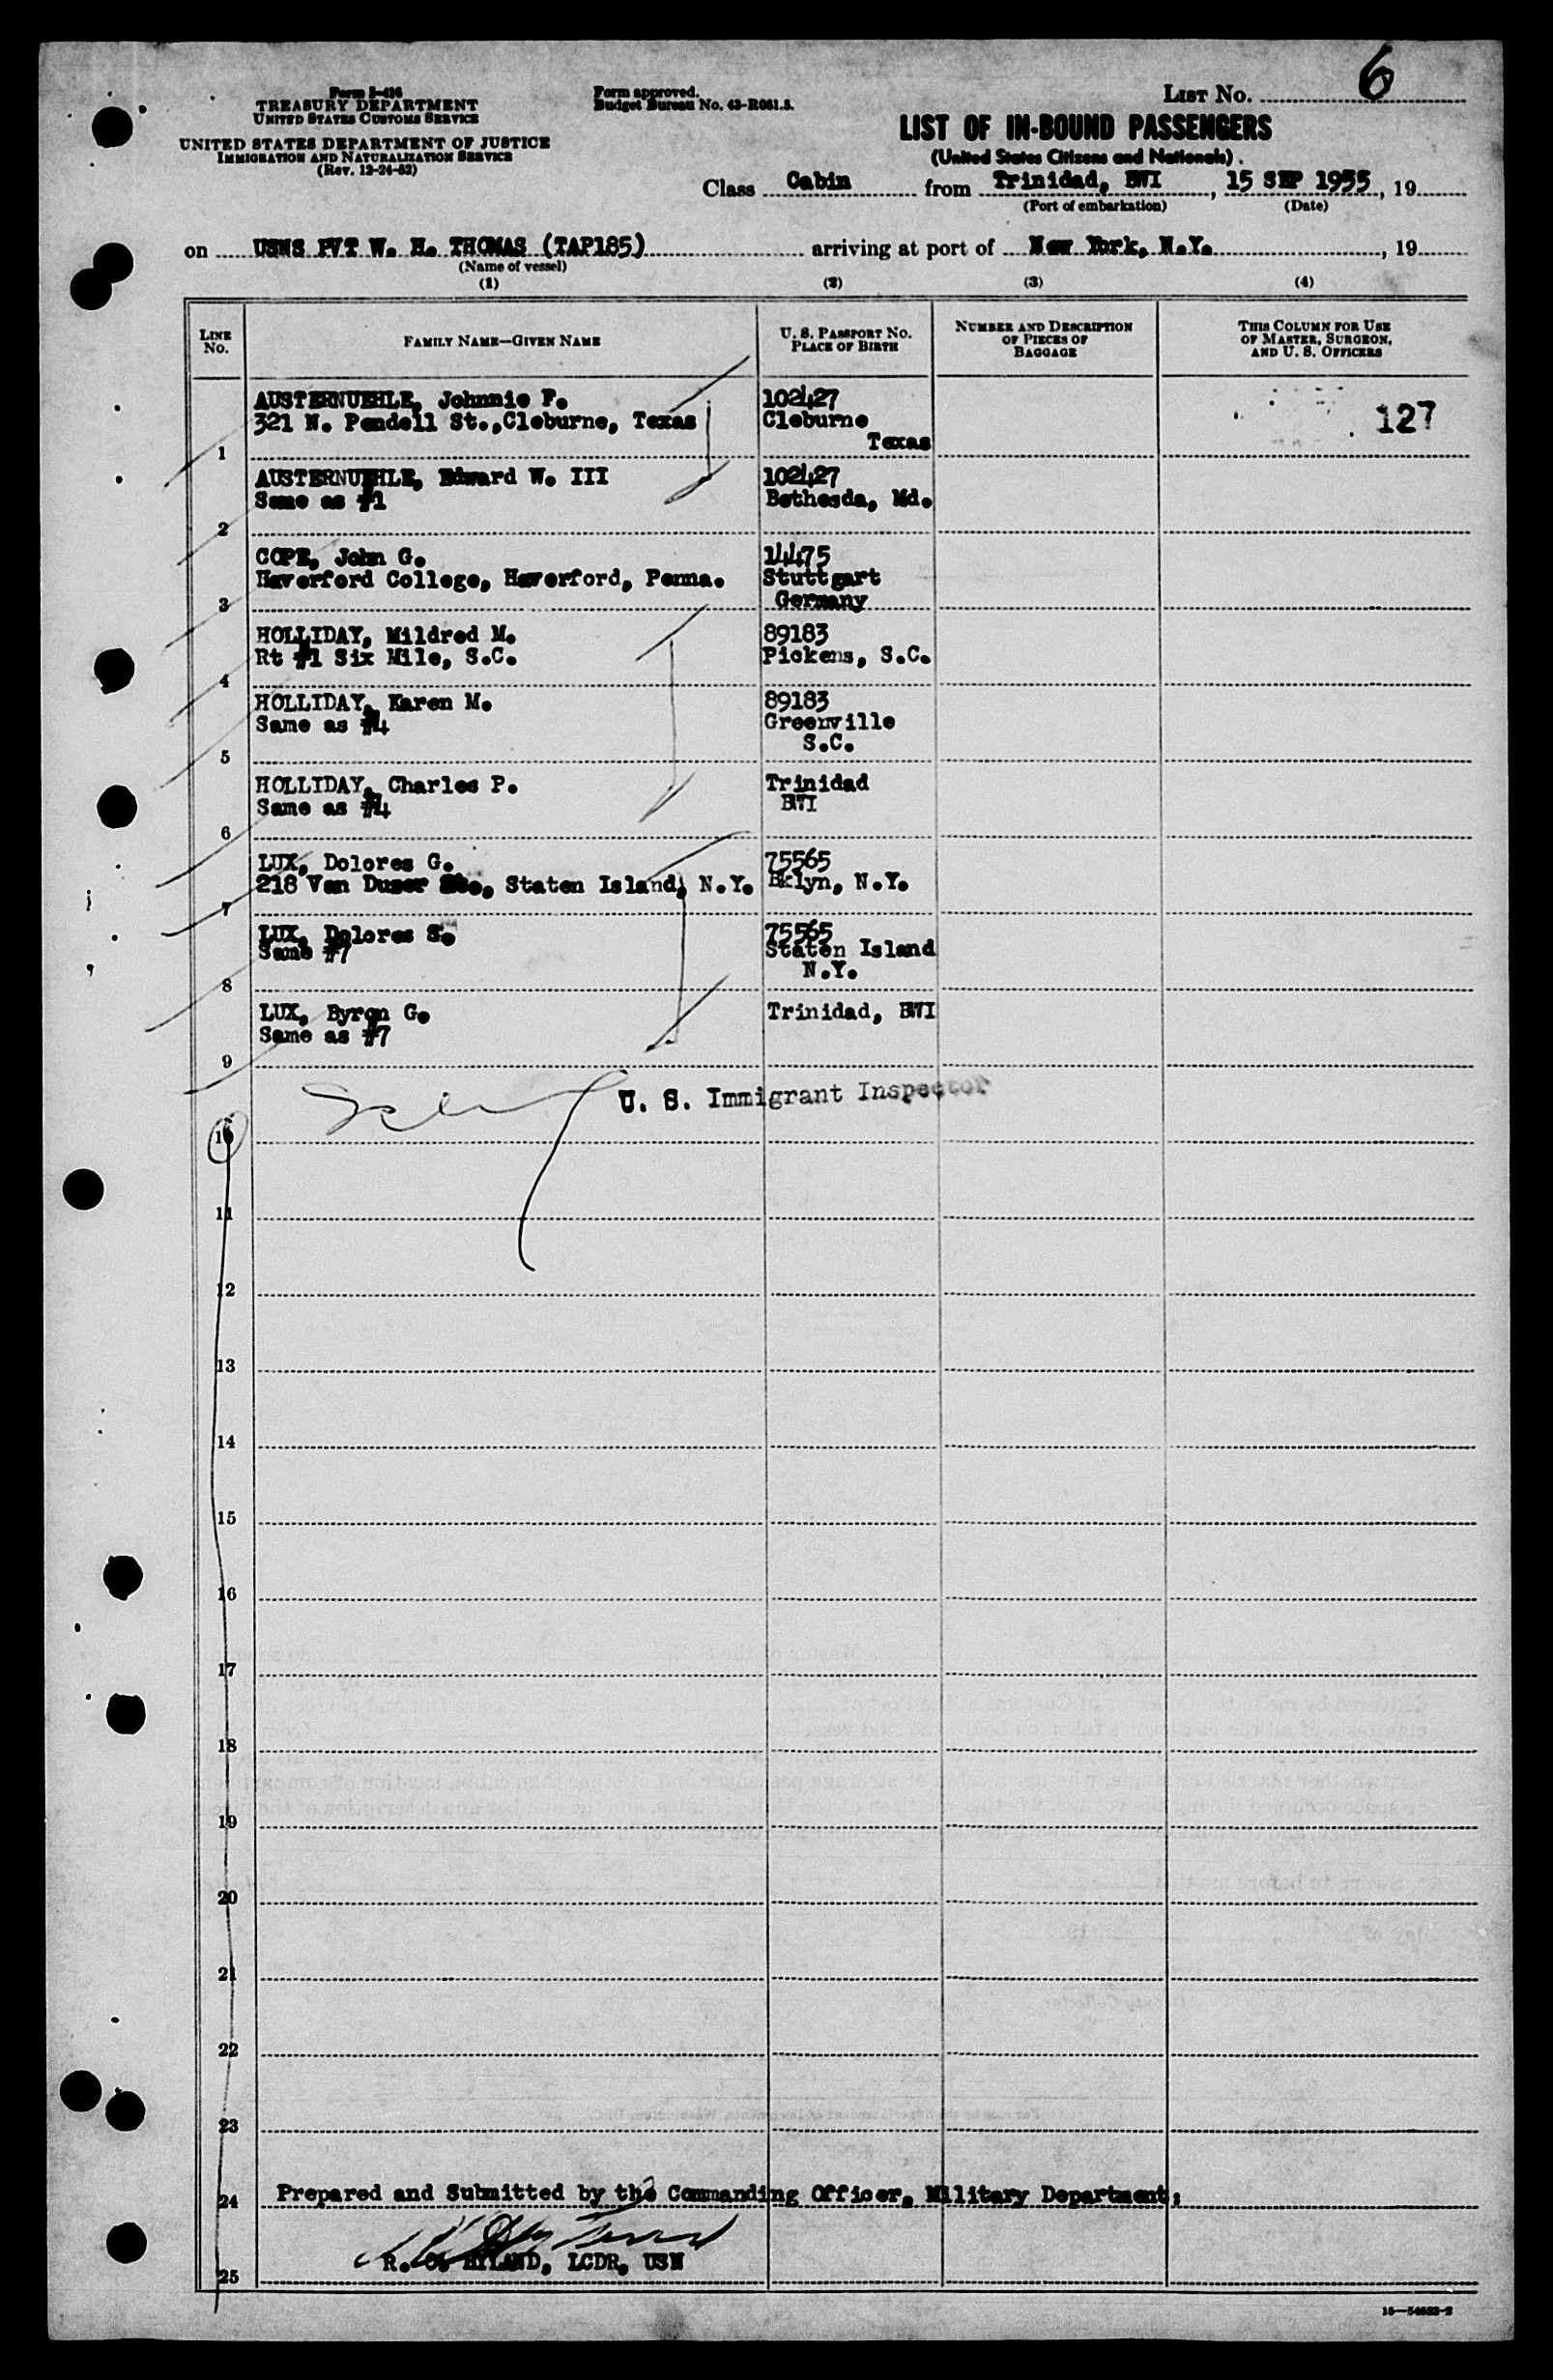 Form I-416
TREASURY DEPARTMENT
UNITED STATES CUSTOMS SERVICE
UNITED STATES DEPARTMENT OF JUSTICE
IMMIGRATION AND NATURALIZATION SERVICE
(Rev. 12-24-52)
Form approved.
Budget Bureau No. 43-R061.5.
LIST No. 6
LIST OF IN-BOUND PASSENGERS
(United States Citizens and Nationals)
Class Cabin from Trinidad, BWI, 15 SEP 1955, 19
(Port of embarkation) (Date)
on USNS PVT W. H. THOMAS (TAP185) arriving at port of New York, N.Y., 19
(Name of vessel)
(1) (2) (3) (4)
LINE No.
FAMILY NAME—GIVEN NAME
U. S. PASSPORT NO.
PLACE OF BIRTH
NUMBER AND DESCRIPTION
OF PIECES OF
BAGGAGE
THIS COLUMN FOR USE
OF MASTER, SURGEON,
AND U. S. OFFICERS
AUSTERNUEHLE, Johnnie F. 102427
321 N. Pendell St.,Cleburne, Texas Cleburne 127
1 Texas
AUSTERNUEHLE, Edward W. III 102427
Same as #1 Bethesda, Md.
2
COPE, John G. 14475
Haverford College, Haverford, Penna. Stuttgart
3 Germany
HOLLIDAY, Mildred M. 89183
Rt #1 Six Mile, S.C. Pickens, S.C.
4
HOLLIDAY, Karen M. 89183
Same as #4 Greenville
5 S.C.
HOLLIDAY, Charles P. Trinidad
Same as #4 BWI
6
LUX, Dolores G. 75565
218 Van Duzer St., Staten Island, N.Y. Bklyn, N.Y.
7
LUX, Dolores S. 75565
Same #7 Staten Island
8 N.Y.
LUX, Byron G. Trinidad, BWI
Same as #7
9
U. S. Immigrant Inspector
10
11
12
13
14
15
16
17
18
19
20
21
22
23
24 Prepared and Submitted by the Commanding Officer, Military Department:
25 R. O. HYLAND, LCDR, USN